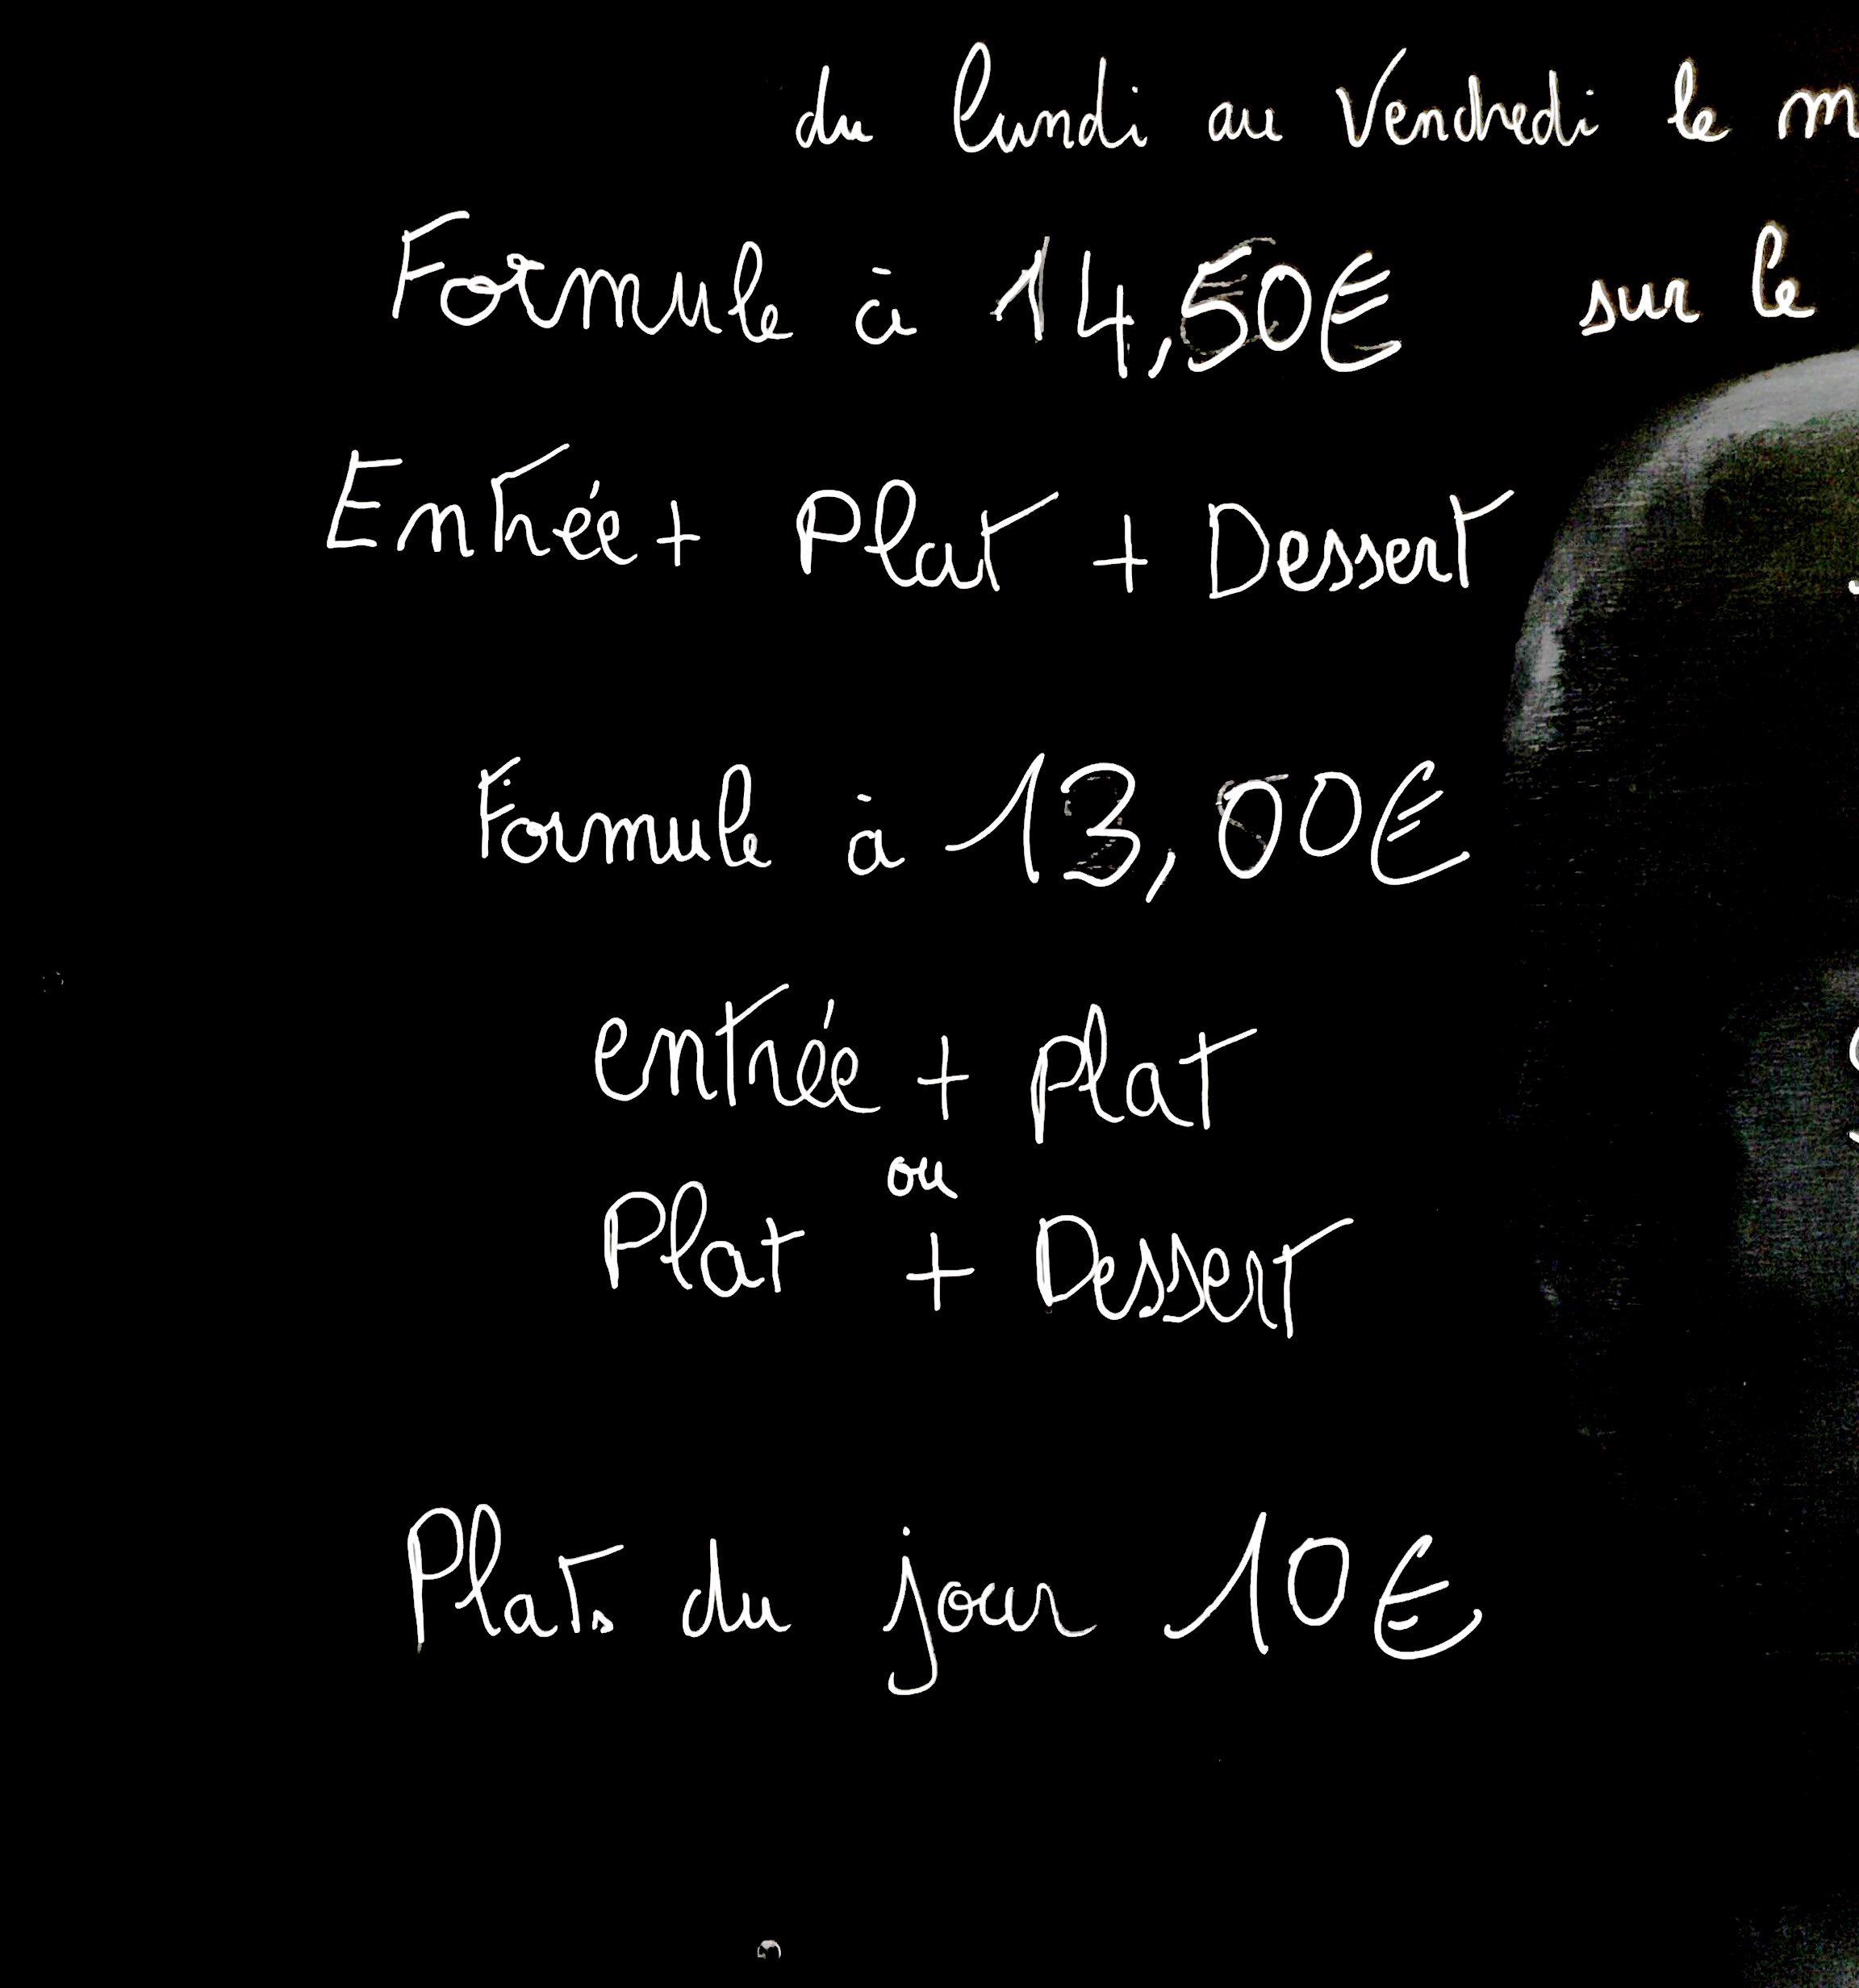 du lundi au Vendredi le m
Formule à 14,50€ sur le
Entrée + Plat + Dessert
Formule à 13,00€
entrée + plat
ou
Plat + Dessert
Plats du jour 10€